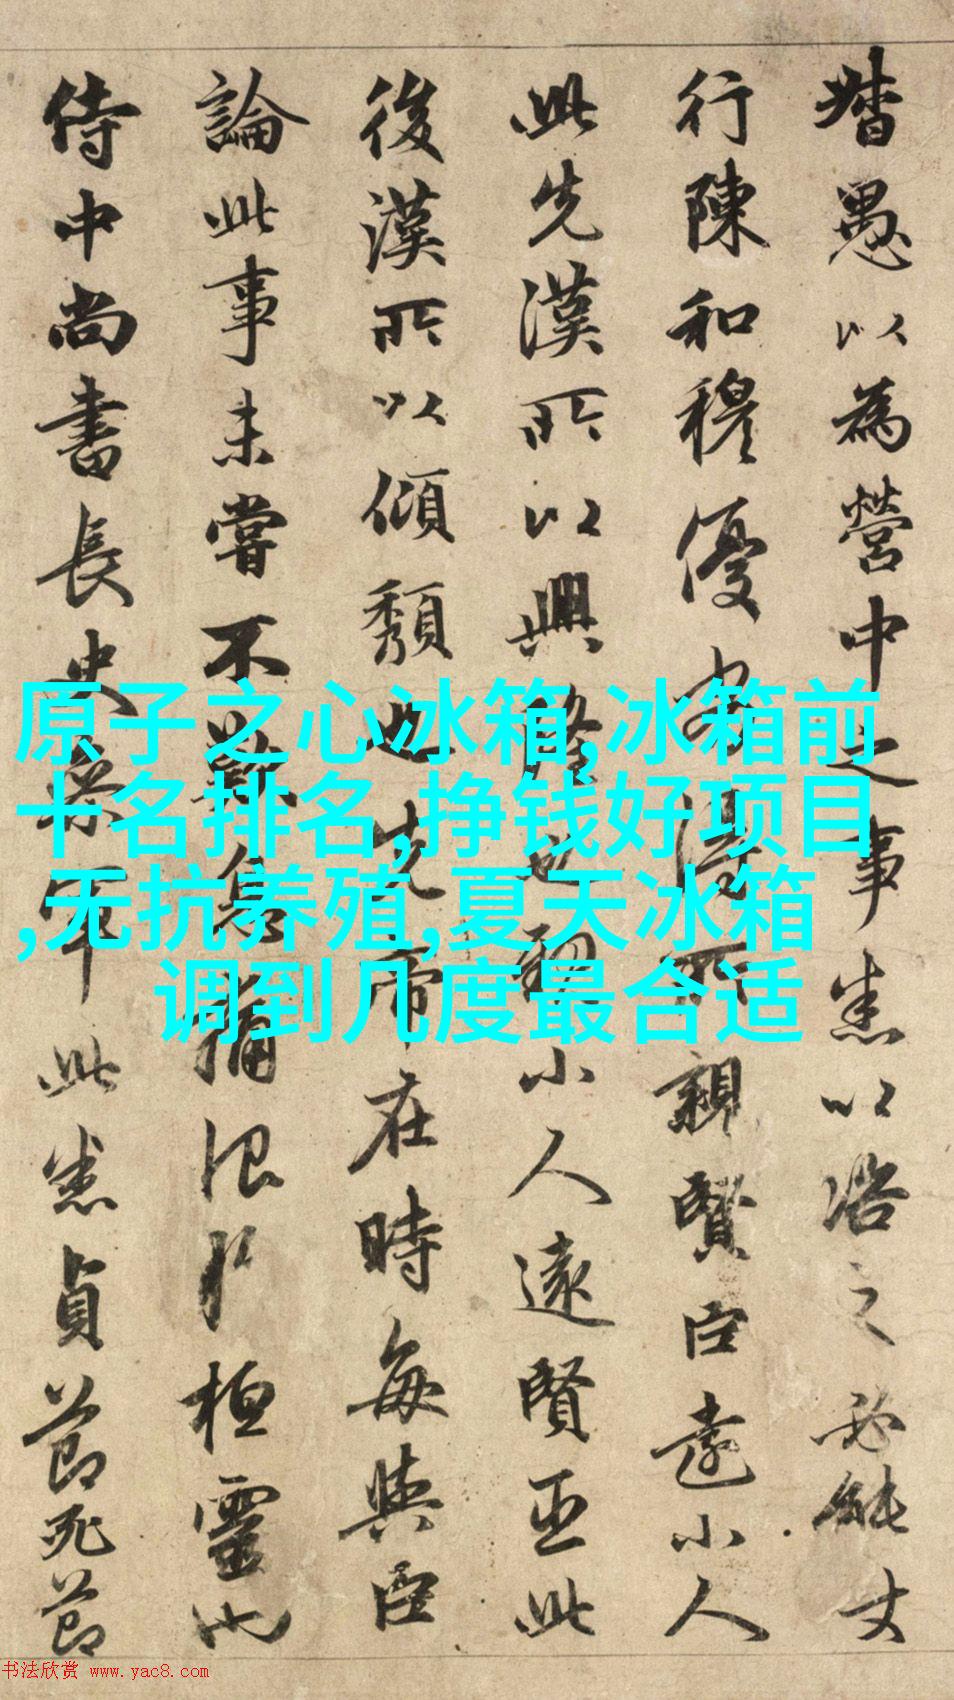 督愚以為營中之事悉以咨之必能
行陳和穆優劣得所親賢臣遠小人
此先漢所以興隆也親小人遠賢臣此
後漢所以傾頹也先帝在時每與臣
論此事未嘗不歎息痛恨於桓靈也
侍中尚書長史參軍此悉貞節死節
原子之心冰箱,冰箱前
十名排名,挣钱好项目
,无抗养殖,夏天冰箱
调到几度最合适
书法欣赏 www.yac8.com